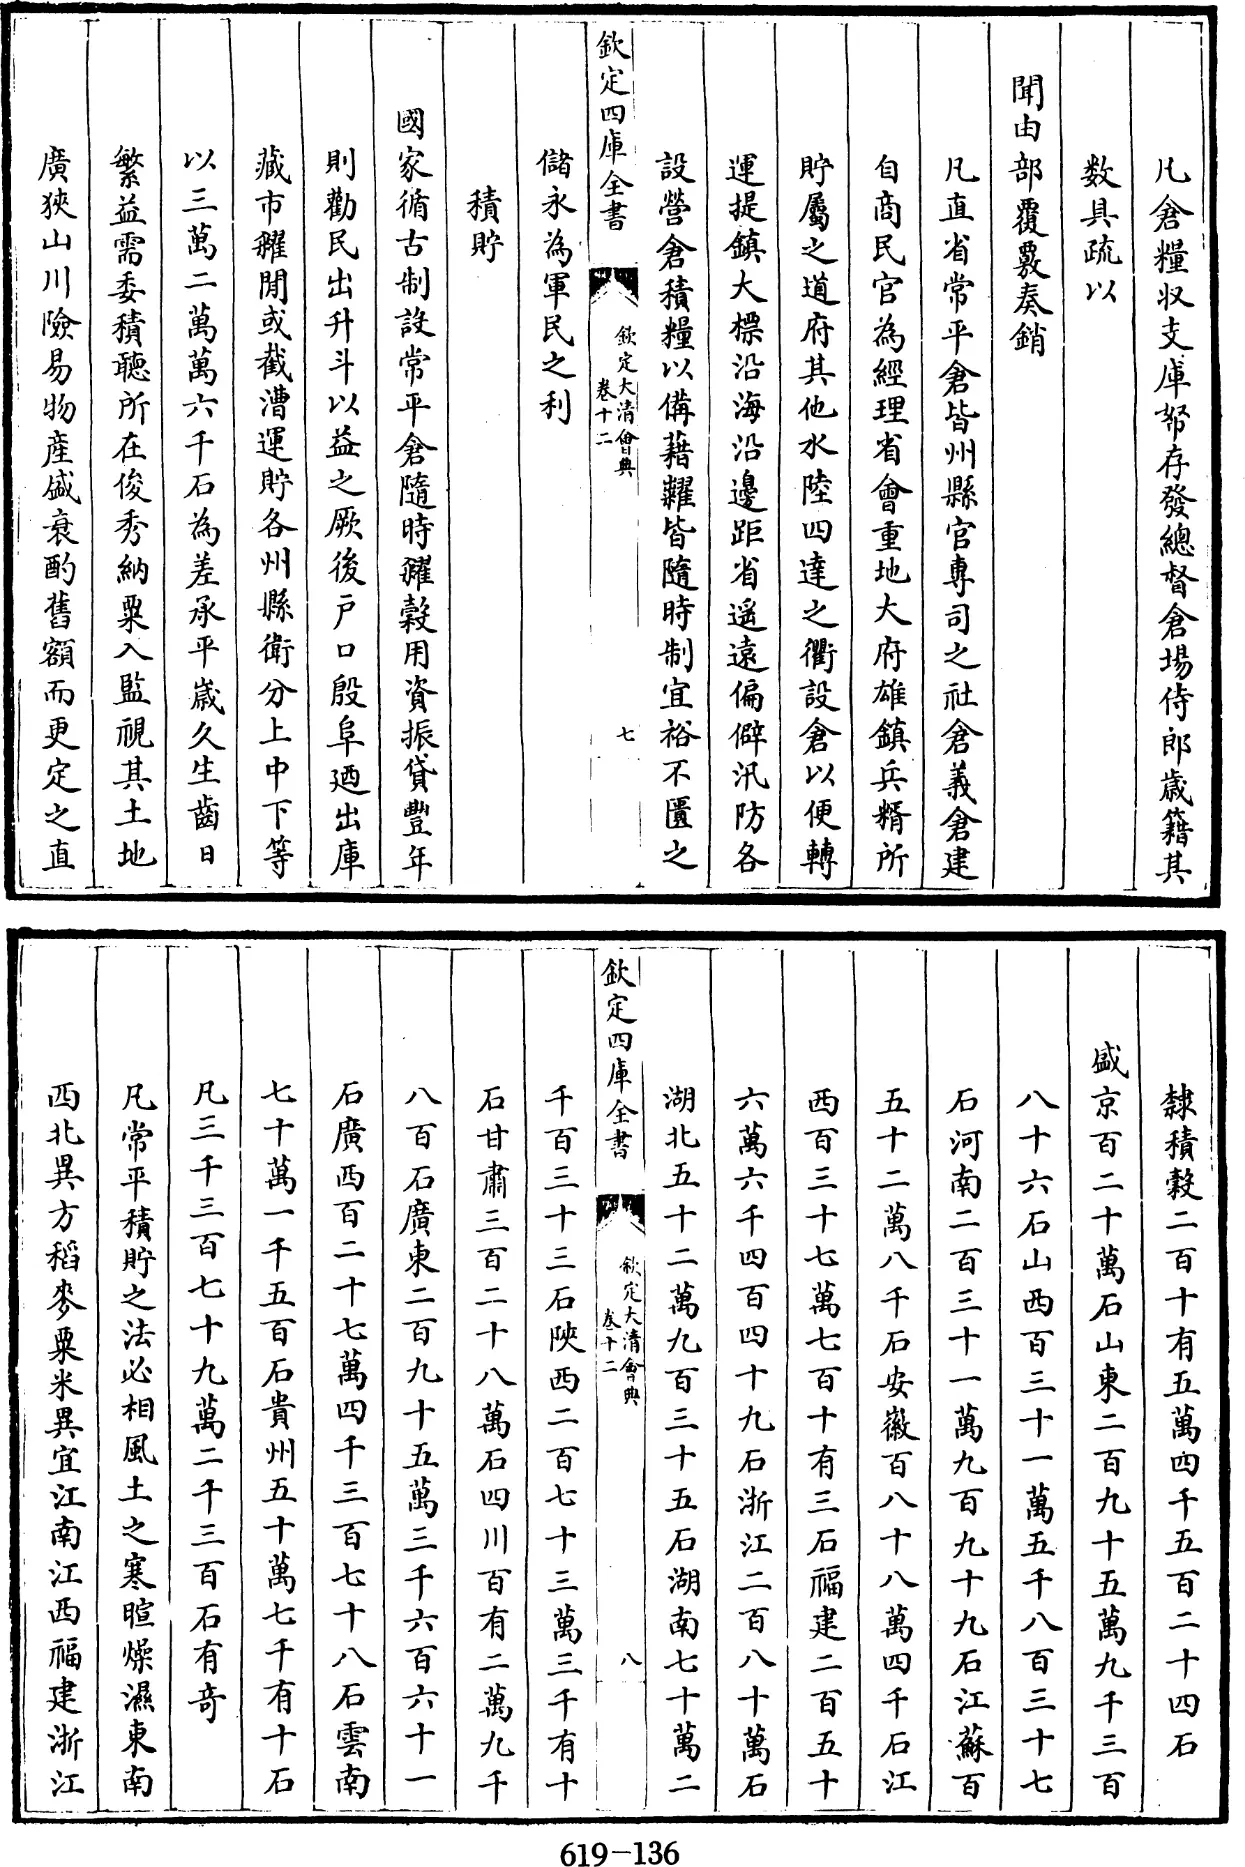 凡倉糧収支庫帑存發總督倉場侍郎歲籍其
数具疏以
聞由部覆覈奏銷
凡直省常平倉皆州縣官專司之社倉義倉建
自商民官為經理省會重地大府雄鎮兵糈所
貯屬之道府其他水陸四達之衢設倉以便轉
運提鎮大標沿海沿邊距省遥遠偏僻汛防各
設營倉積糧以備藉糶皆隨時制宜裕不匱之
欽定四庫全書
欽定大清會典
卷十二
七
儲永為軍民之利
積貯
國家循古制設常平倉隨時糴穀用資振貸豐年
則勸民出升斗以益之厥後戶口殷阜迺出庫
藏市糴閒或截漕運貯各州縣衛分上中下等
以三萬二萬萬六千石為差承平歲久生齒日
繁益需委積聽所在俊秀納粟入監視其土地
廣狹山川險易物產盛衰酌舊額而更定之直
隸積穀二百十有五萬四千五百二十四石
盛京百二十萬石山東二百九十五萬九千三百
八十六石山西百三十一萬五千八百三十七
石河南二百三十一萬九百九十九石江蘇百
五十二萬八千石安徽百八十八萬四千石江
西百三十七萬七百十有三石福建二百五十
六萬六千四百四十九石浙江二百八十萬石
湖北五十二萬九百三十五石湖南七十萬二
欽定四庫全書
欽定大清會典
卷十二
八
千百三十三石陝西二百七十三萬三千有十
石甘肅三百二十八萬石四川百有二萬九千
八百石廣東二百九十五萬三千六百六十一
石廣西百二十七萬四千三百七十八石雲南
七十萬一千五百石貴州五十萬七千有十石
凡三千三百七十九萬二千三百石有奇
凡常平積貯之法必相風土之寒暄燥濕東南
西北異方稻麥粟米異宜江南江西福建浙江
619-136